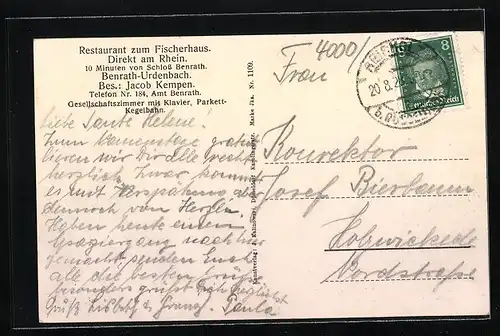 Restaurant zum Fischerhaus.
Direkt am Rhein.
10 Minuten von Schloß Benrath.
Benrath-Urdenbach.
Bes.: Jacob Kempen.
Telefon Nr. 184, Amt Benrath.
Gesellschaftszimmer mit Klavier, Parkett-
Kegelbahn.
liebe Tante Helene!
Zum Namenstage gratu-
lieren wir Dir alle recht
herzlich. Zwar kommt
es mit Verspätung aber
dennoch von Herzen.
Haben heute einen
Spaziergang nach hier
gemacht,
alle die besten Grüße
besonders grüßt Dich herzlichst
Gruß Lisbeth & Franz. Paula
Nr. 1109.
4000/
Frau
Konrektor
Josef Bierbaum
Holzwickede
Nordstraße
20.8.
8
Deutsches Reich